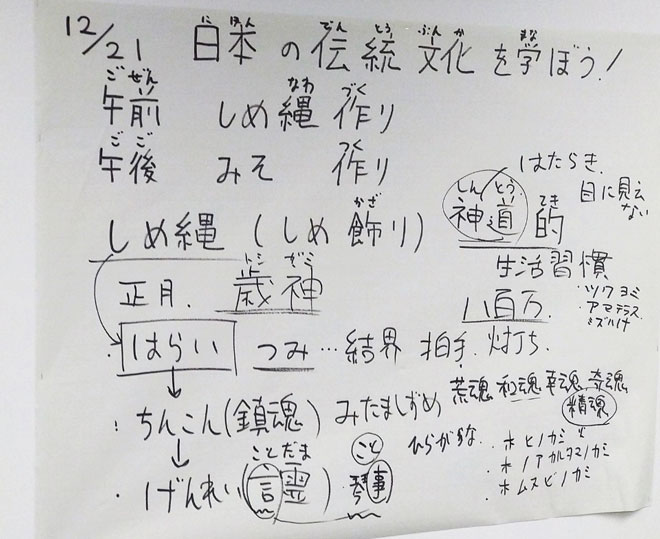 12/21 日本の伝統文化を学ぼう!
にほん でんとうぶんか まな
ごぜん なわ づく
午前 しめ縄 作り
ごご づく
午後 みそ 作り
はたらき
目に見えない
しんとう てき
神道的
かざ
しめ縄(しめ飾り)
生活習慣
トシ ガミ
正月. 歳神
八百万.
・ツクヨミ
・アマテラス
・ミズハメ
・はらい つみ…結界 拍手.火打ち.
荒魂 和魂 幸魂 奇魂
精魂
・ちんこん(鎮魂) みたましずめ
ことだま こと ひらがな..
・げんれい(言霊) 琴 事
・ホヒノカミ
・ホノアカルヌノカミ
・ホムスビノカミ